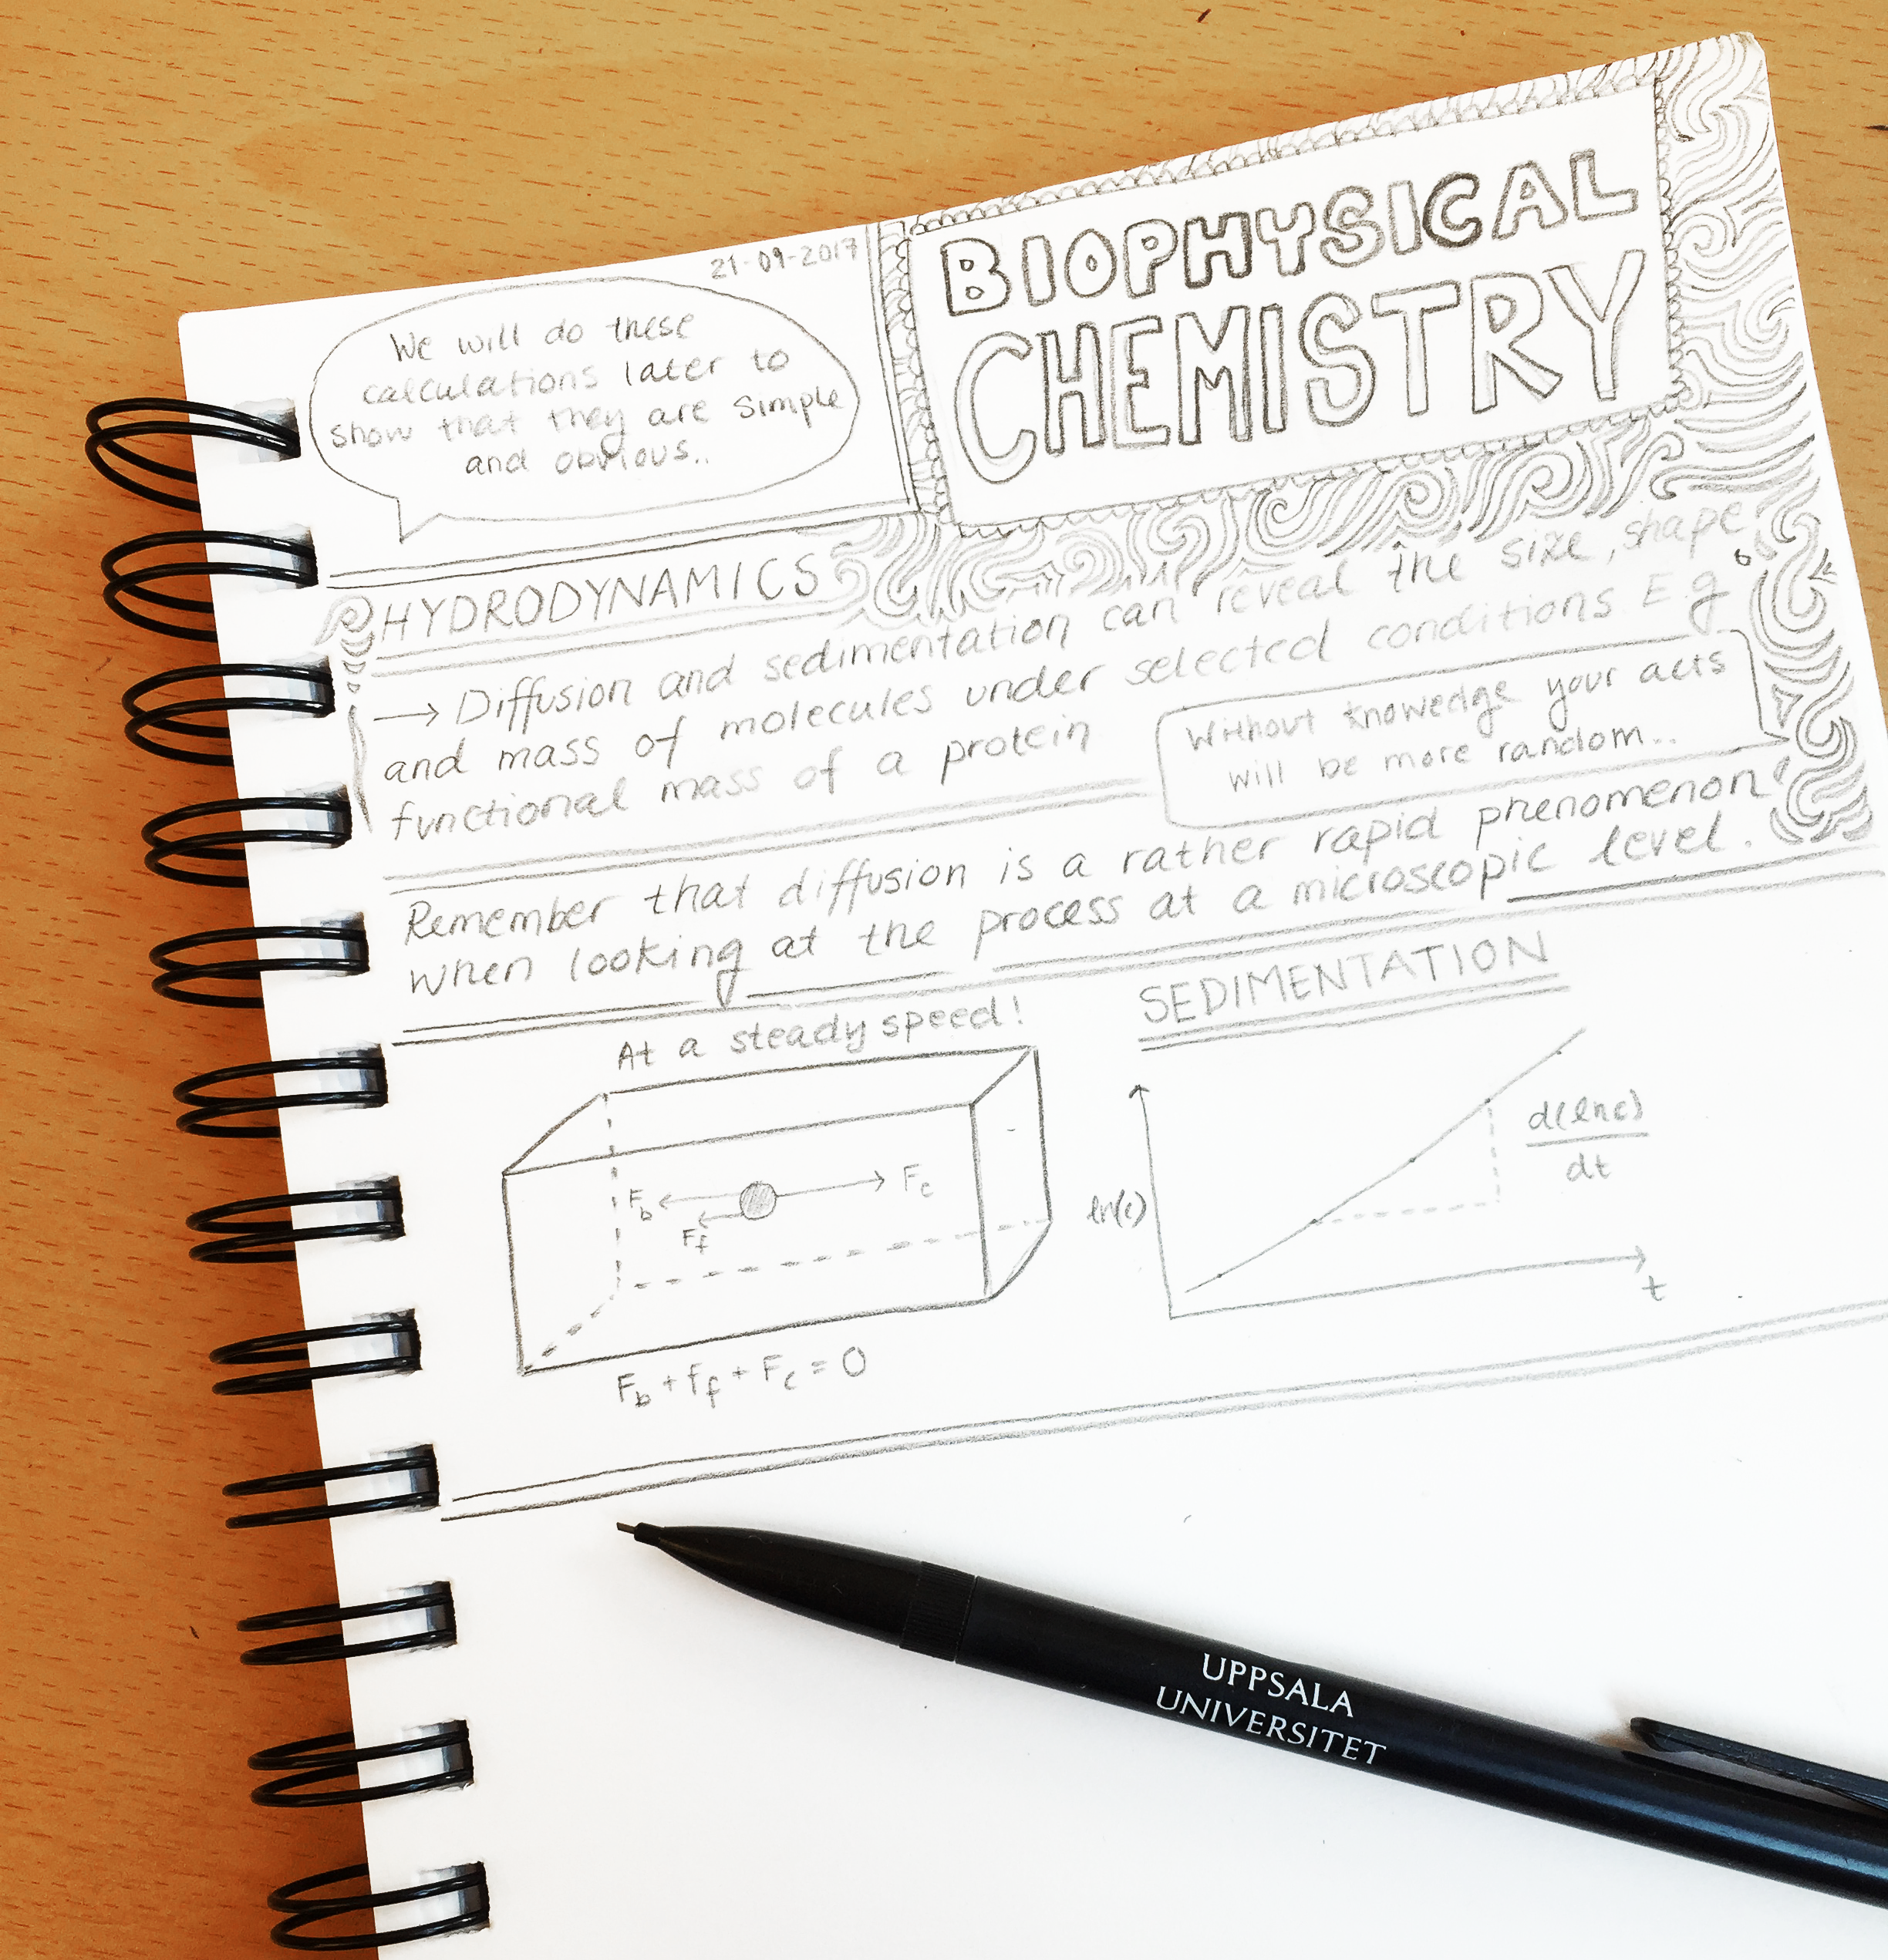 21-09-2017
We will do these
calculations later to
show that they are simple
and obvious..
BIOPHYSICAL
CHEMISTRY
HYDRODYNAMICS
→ Diffusion and sedimentation can reveal the size, shape
and mass of molecules under selected conditions. E.g
functional mass of a protein
Without knowedge your acts
will be more random..
Remember that diffusion is a rather rapid phenomenon
when looking at the process at a microscopic level.
At a steady speed!
F_b F_f F_c
F_b + f_f + F_c = 0
SEDIMENTATION
ln(c)
d(lnc)
dt
t
UPPSALA
UNIVERSITET